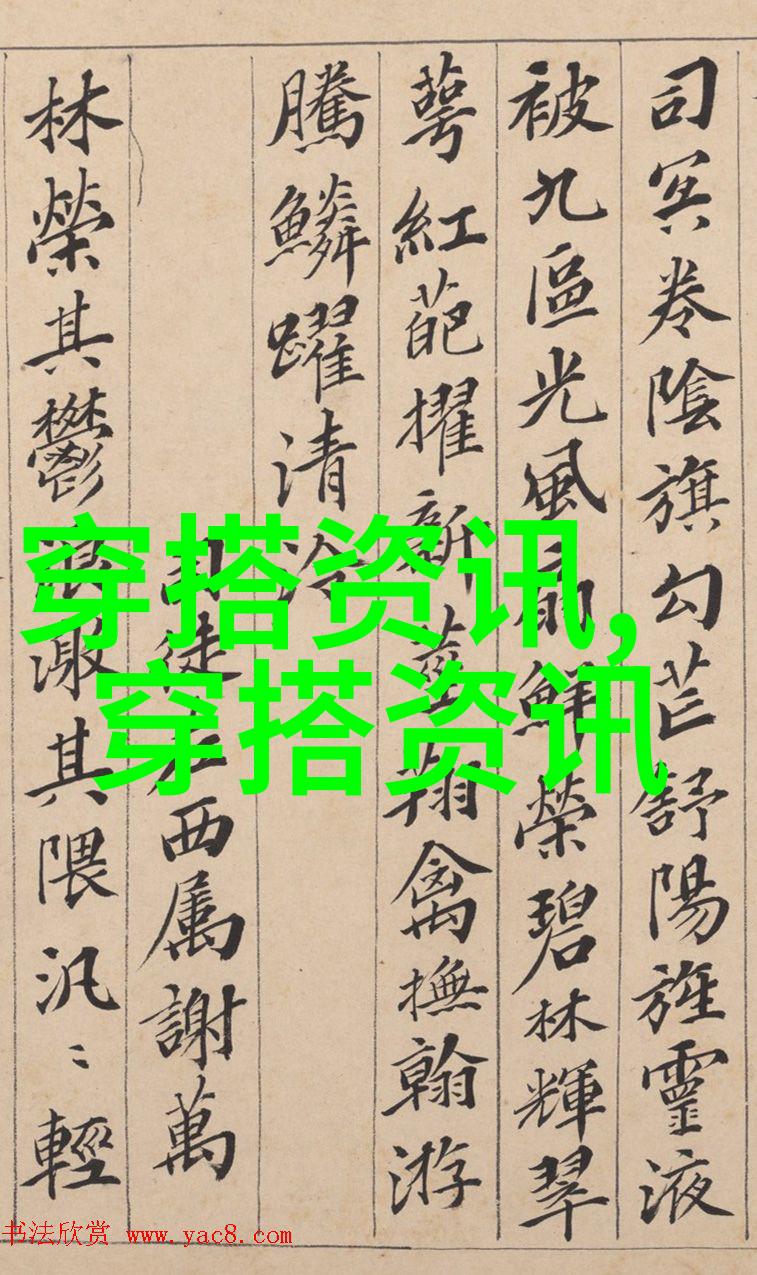 司冥卷陰旗勾芒舒陽旌靈液
被九區光風扇鮮榮碧林輝翠
萼紅葩擢新莖翔禽撫翰游
騰鱗躍清泠
司徒左西属謝萬
林榮其鬱浪激其隈汎〻輕
穿搭资讯,
穿搭资讯
书法欣赏 www.yac8.com